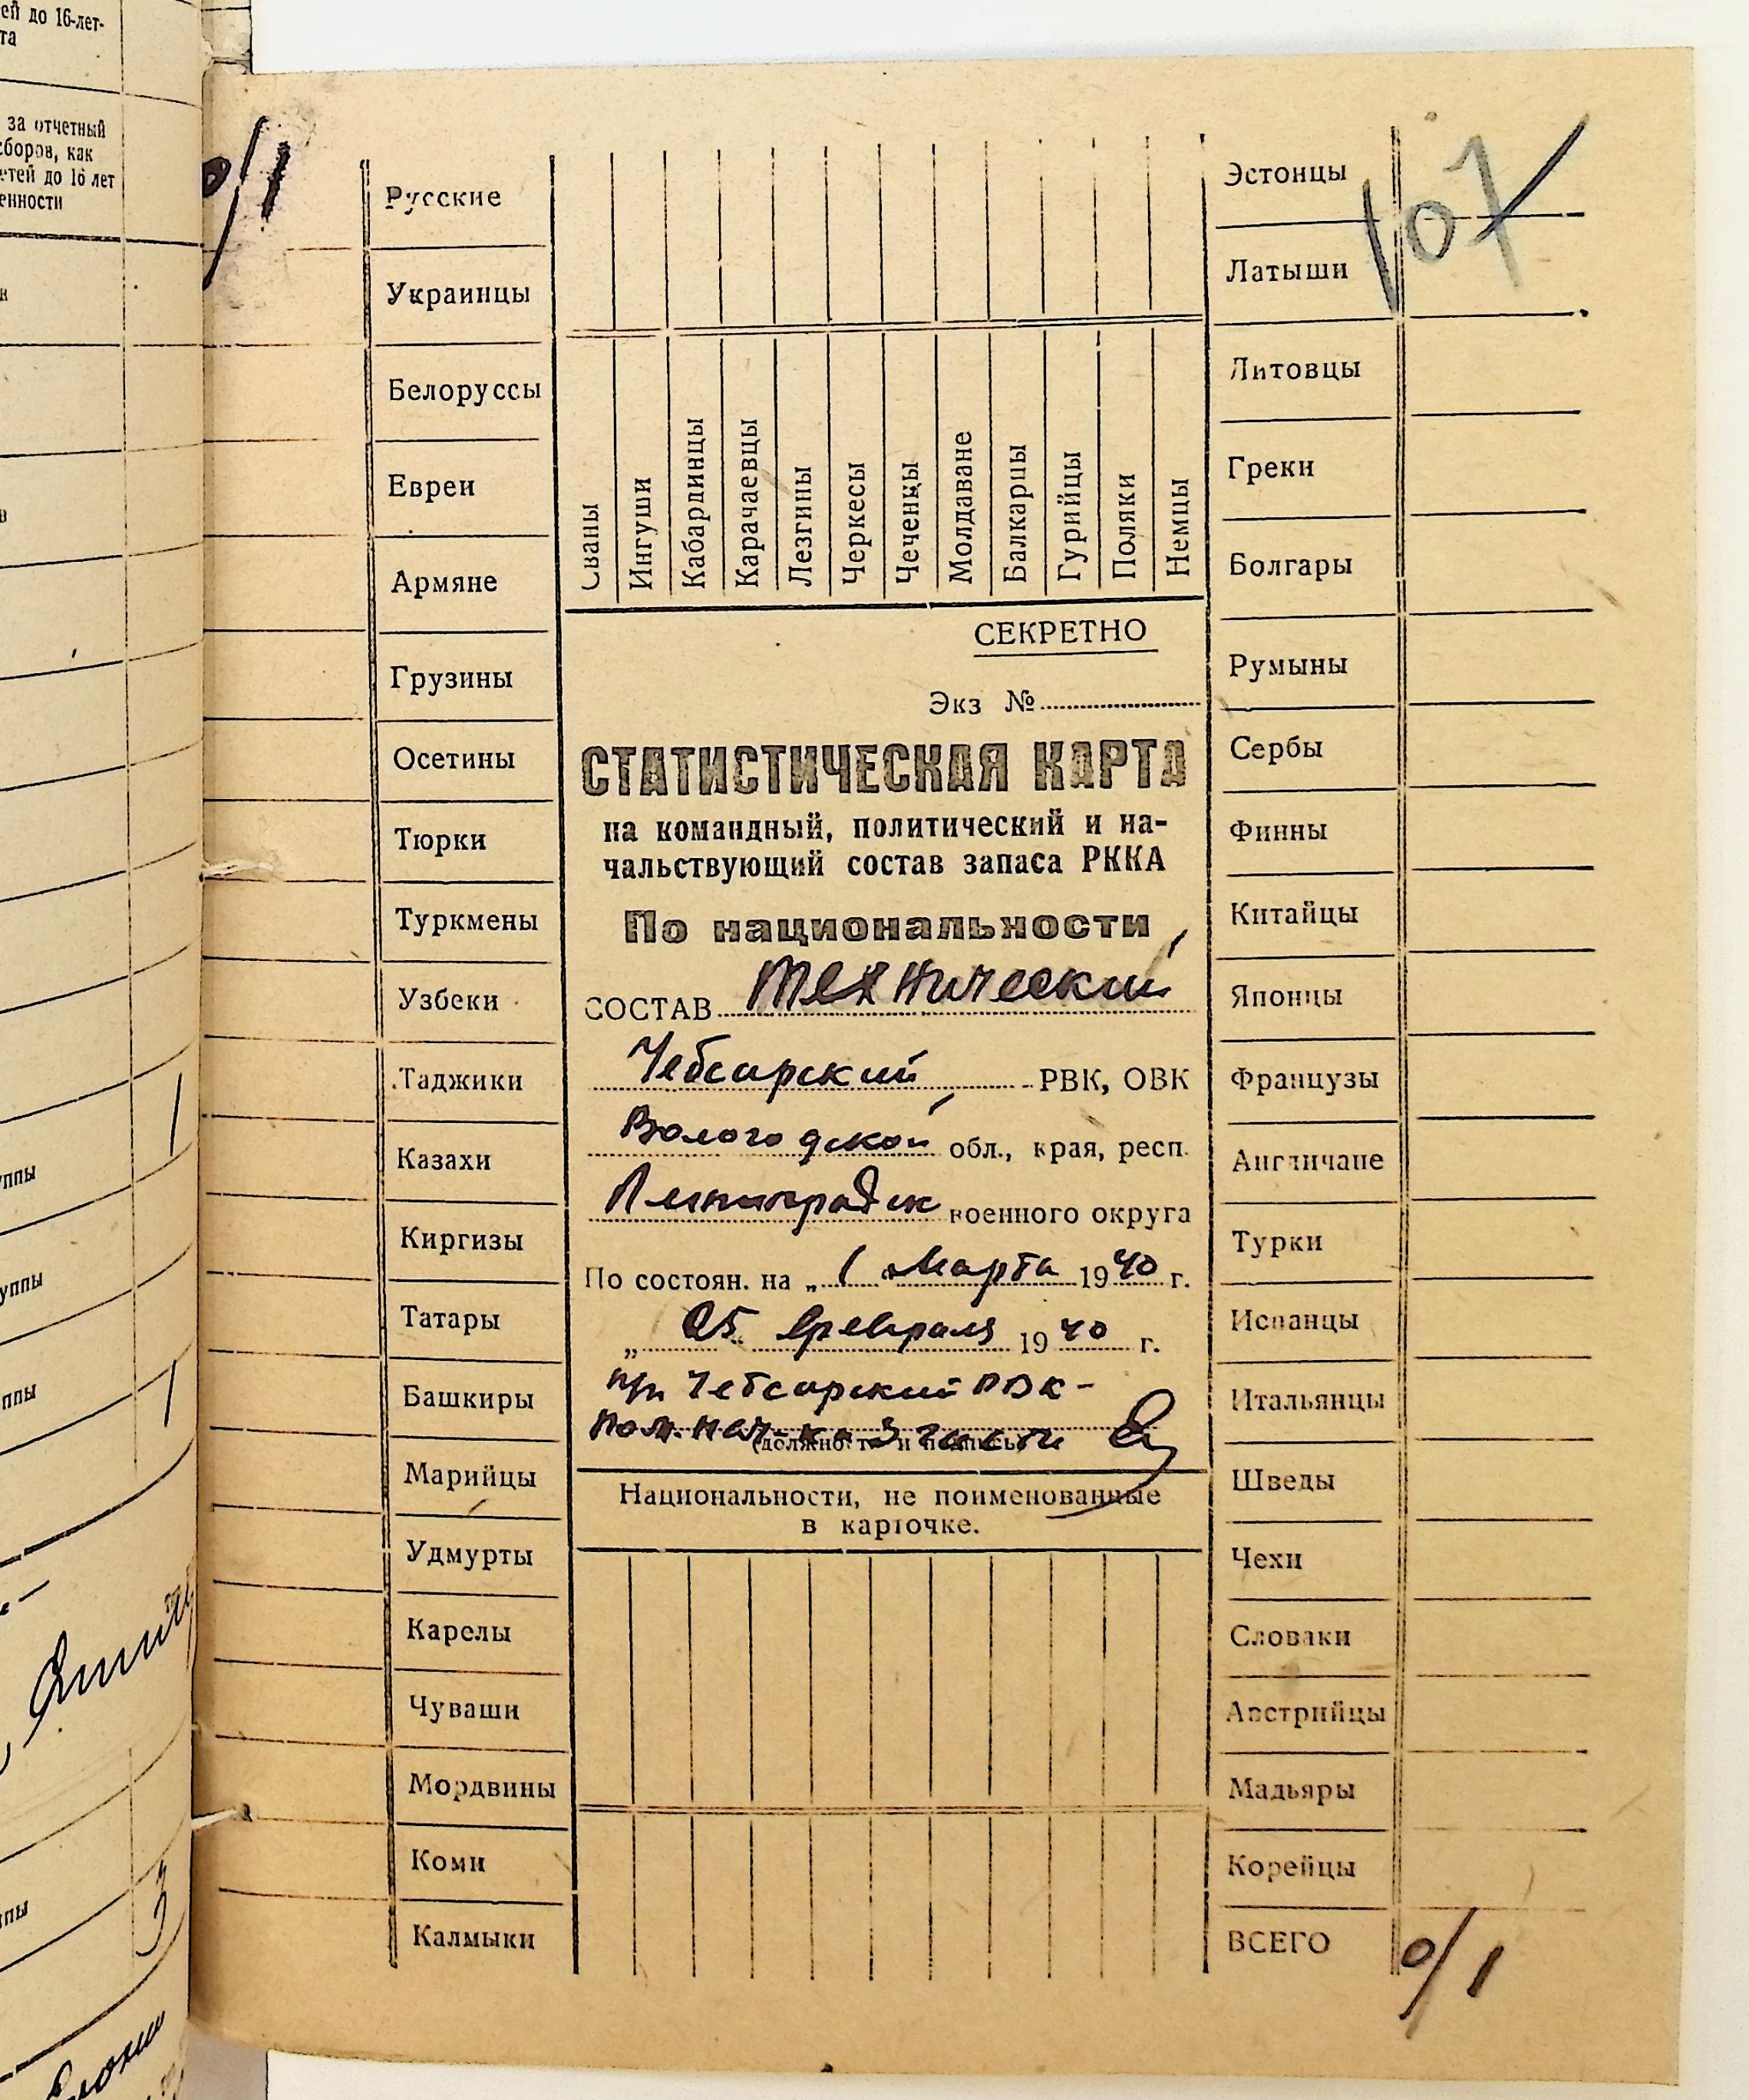 ей до 16-лет-
та
за отчетный
сборов, как
етей до 16 лет
енности
ппы
уппы
ппы
ппы
1
1
3
0/1
107
Русские
Украинцы
Белоруссы
Евреи
Армяне
Грузины
Осетины
Тюрки
Туркмены
Узбеки
Таджики
Казахи
Киргизы
Татары
Башкиры
Марийцы
Удмурты
Карелы
Чуваши
Мордвины
Коми
Калмыки
Сваны
Ингуши
Кабардинцы
Карачаевцы
Лезгины
Черкесы
Чеченцы
Молдаване
Балкарцы
Гурийцы
Поляки
Немцы
СЕКРЕТНО
Экз №
СТАТИСТИЧЕСКАЯ КАРТА
на командный, политический и на-
чальствующий состав запаса РККА
По национальности
СОСТАВ технический
Чебсарский РВК, ОВК
Вологодской обл., края, респ.
Ленинградск военного округа
По состоян. на „ 1 марта 1940 г.
„ 25 " февраля 1940 г.
п/п Чебсарский РВК -
пом. нач-ка 3 части
(должность и подпись)
Национальности, не поименованные
в карточке.
Эстонцы
Латыши
Литовцы
Греки
Болгары
Румыны
Сербы
Финны
Китайцы
Японцы
Французы
Англичане
Турки
Испанцы
Итальянцы
Шведы
Чехи
Словаки
Австрийцы
Мадьяры
Корейцы
ВСЕГО 0/1